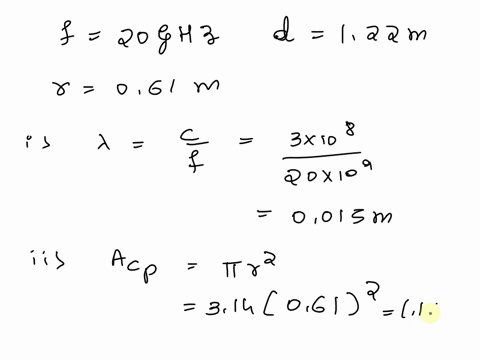 f = 20 GHz d = 1.22 m
r = 0.61 m
i> λ = c/f = 3×10^8/20×10^9
= 0.015 m
ii> Acp = πr^2
= 3.14 (0.61)^2 = 1.1